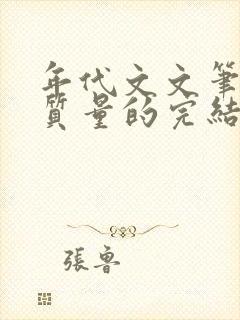 年代文文筆
質量的完結
張魯